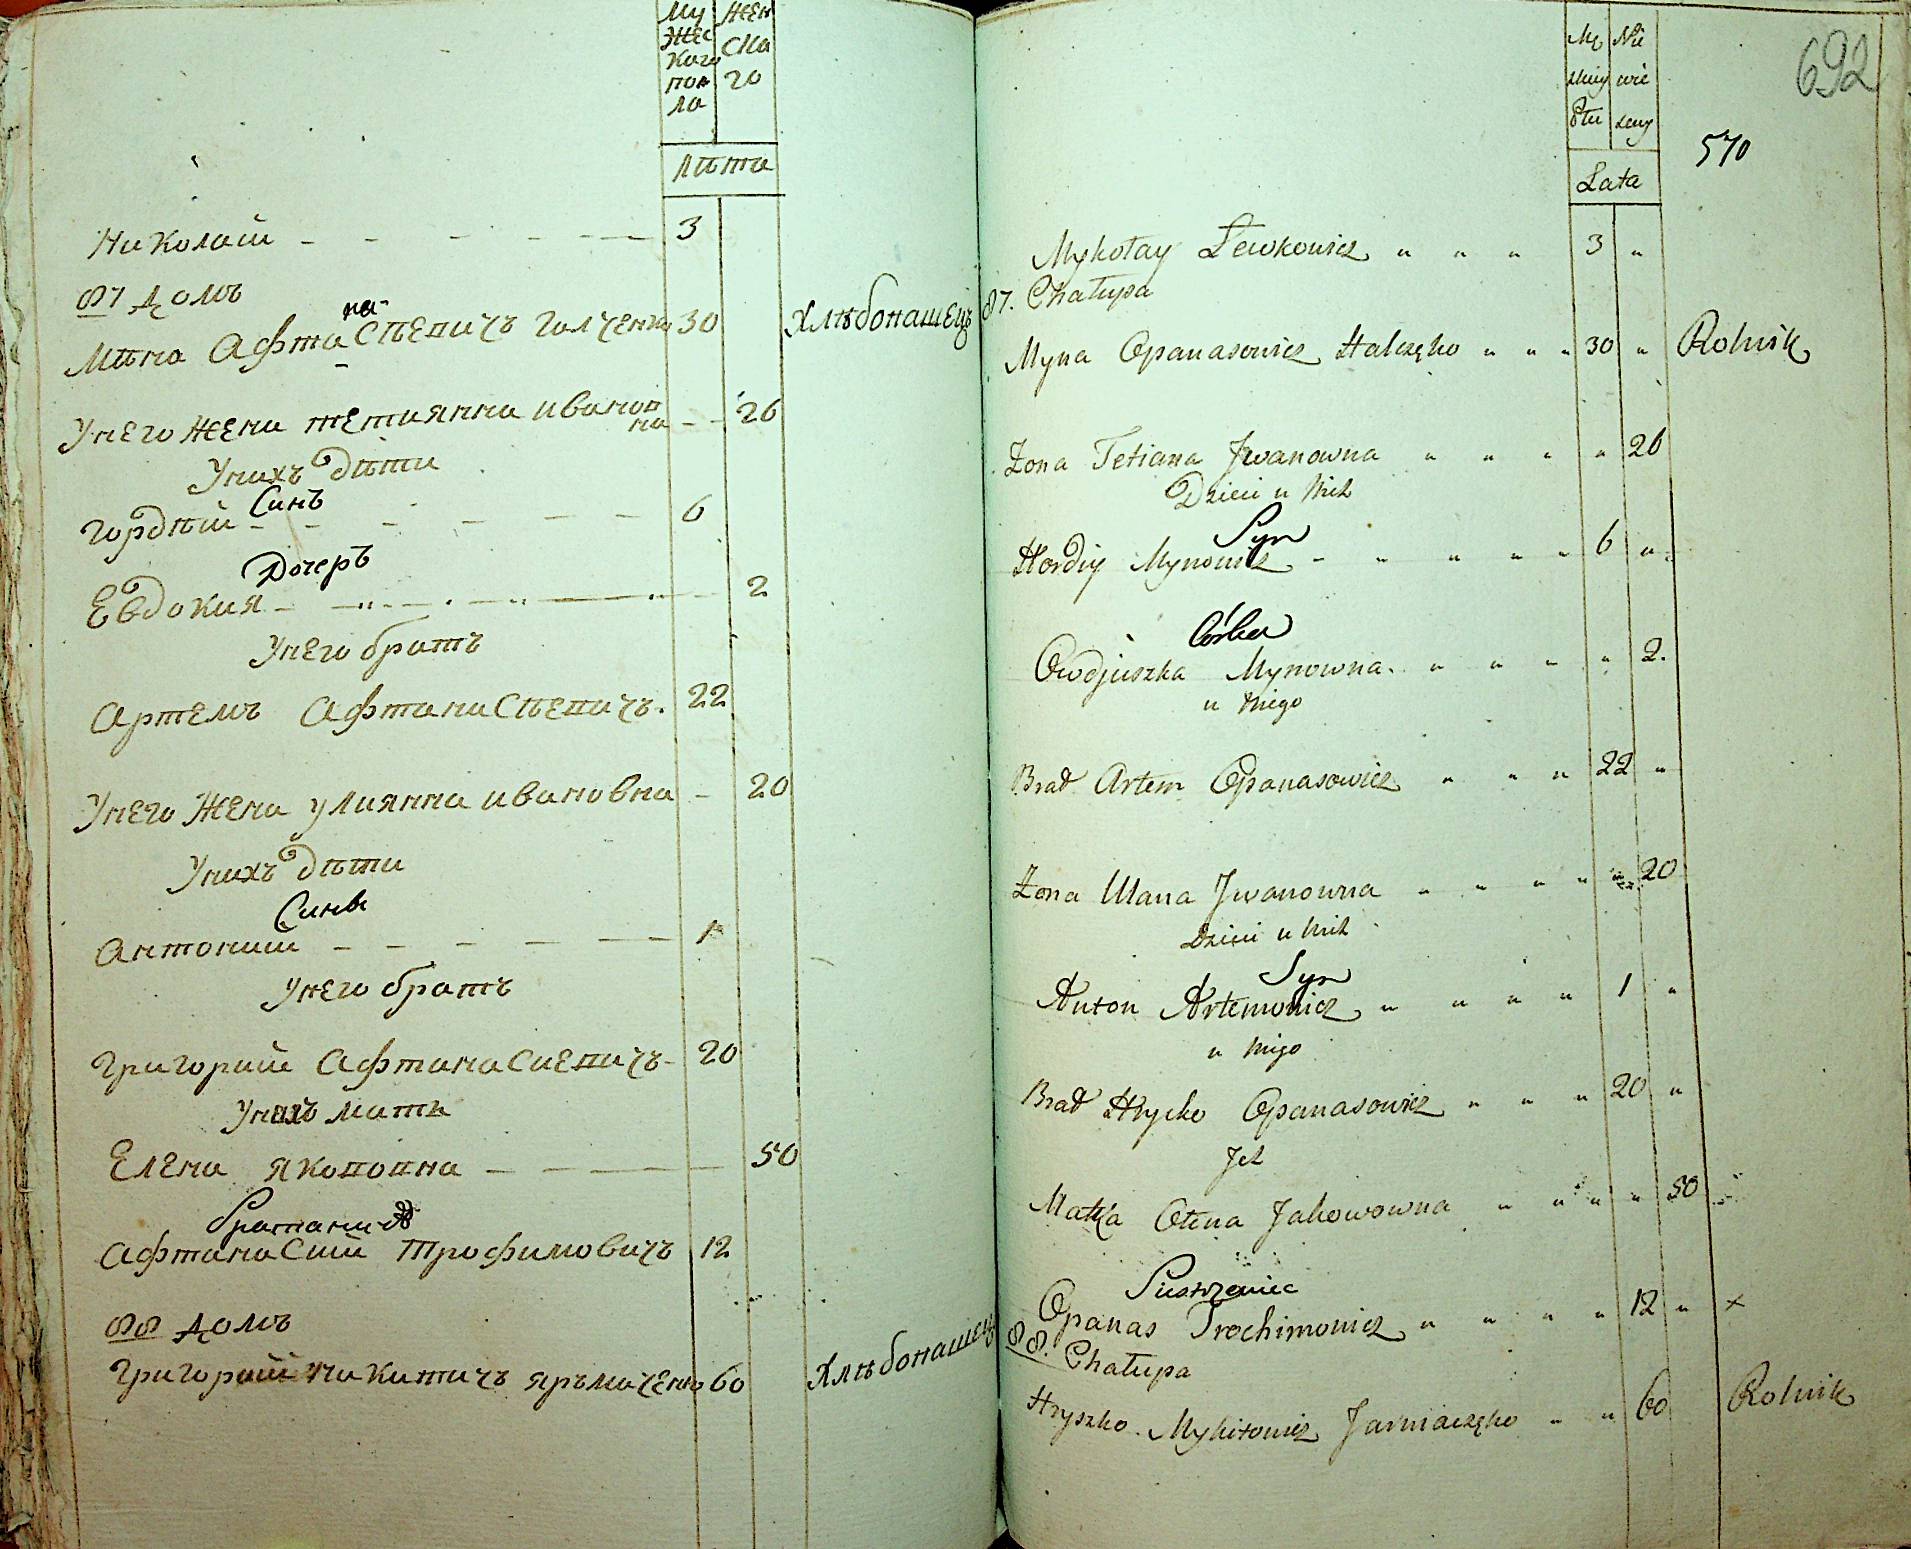 Му Жен
жес ска
каго го
пол
ла
лѣта
Николай 3
87 домъ
Мина Афтанасѣевичъ Галченко 30 Хлѣбопашецъ
У него жена Тетиянна Иванов
на 26
У нихъ дѣти
Синъ
Гордѣй 6
Дочеръ
Евдокия 2
У него братъ
Артемъ Афтанасѣевичъ 22
У него жена Улиянна Ивановна 20
У нихъ дѣти
Синъ
Антоний 1
У него братъ
Григорий Афтанасиевичъ 20
У нихъ мать
Елена Якововна 50
Афтанасий Трофимовичъ 12
88 домъ
Григорий Никитичъ Ярмаченко 60 Хлѣбопашецъ
692
570
Lata
Mykołay Lewkowicz 3
87. Chałupa
Myna Opanasowicz Halczęko 30 Rolnik
Żona Tetiana Jwanowna 26
Dzieci u Nich
Syn
Hordiy Mynowicz 6
Córka
Owdjuszka Mynowna 2.
u Niego
Brat Artem Opanasowicz 22
Żona Ulana Jwanowna 20
Dzieci u Nich
Syn
Anton Artemowicz 1
u Niego
Brat Hrycko Opanasowicz 20
Jch
Matka Ołena Jakowowna 50
Siestrzeniec
Opanas Trochimowicz 12 x
88. Chałupa
Hryszko Mykitowicz Jarmaczęko 60 Rolnik